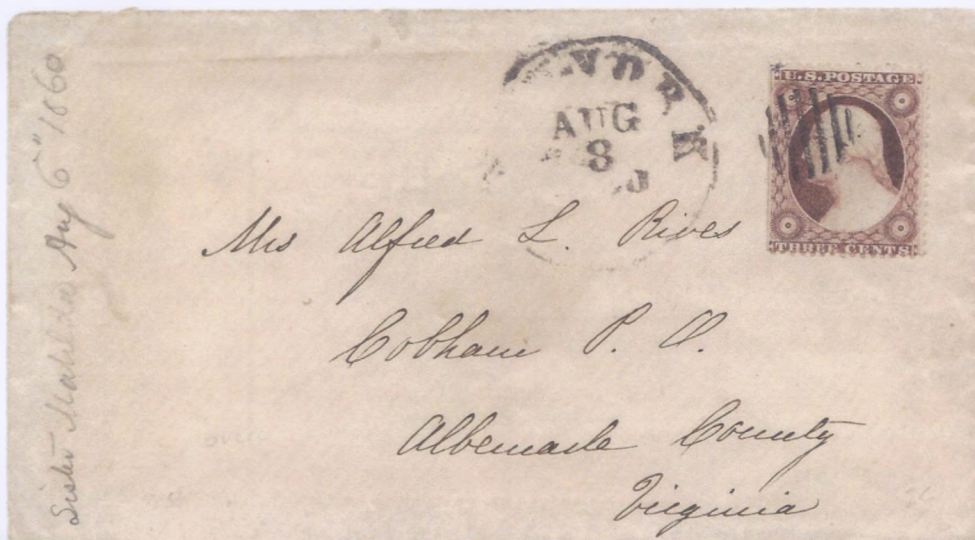 Sister Matilda Aug 6" 1860
YORK
AUG
8
U.S. POSTAGE
THREE CENTS
Mrs Alfred L. Rives
Cobham P. O.
Albemarle County
Virginia
over